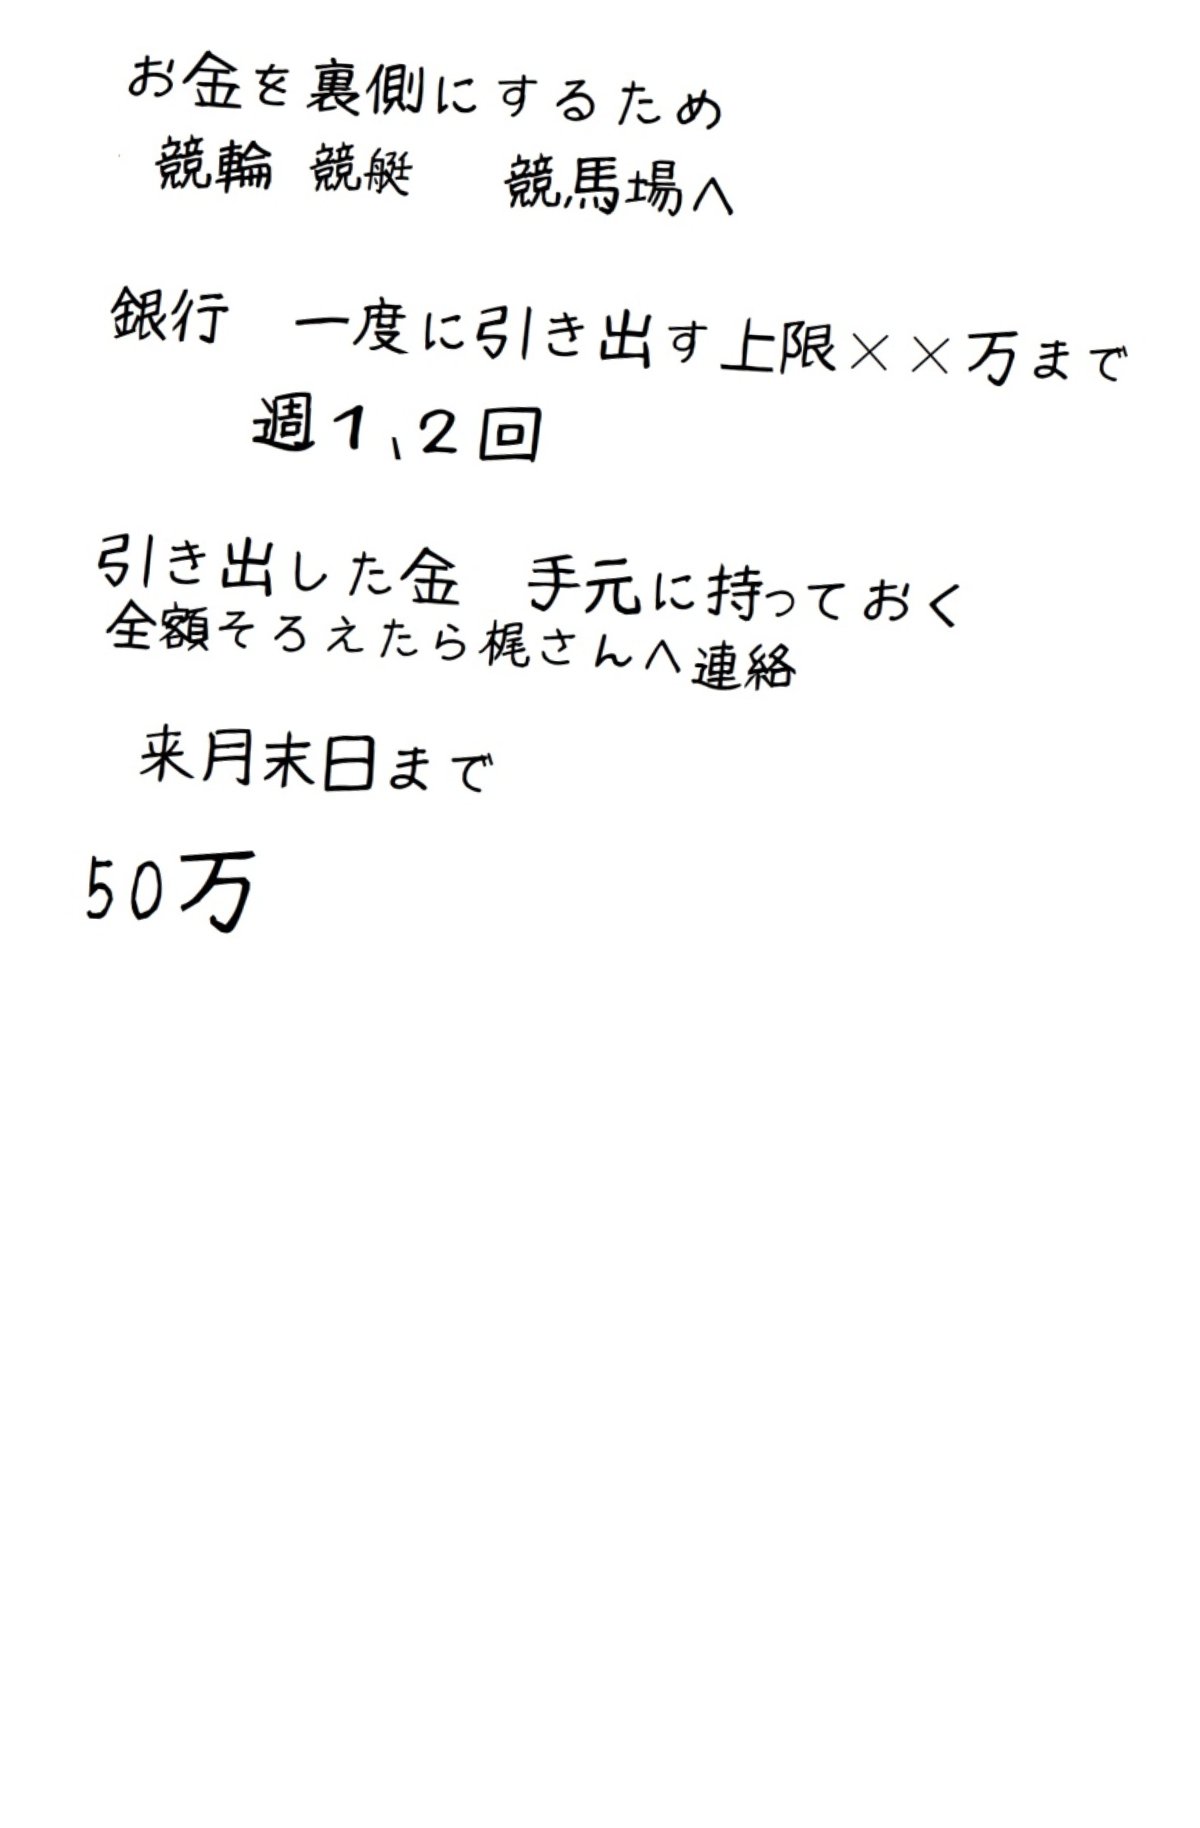 お金を裏側にするため
競輪 競艇 競馬場へ
銀行 一度に引き出す上限××万まで
週1、2回
引き出した金 手元に持っておく
全額そろえたら梶さんへ連絡
来月末日まで
50万